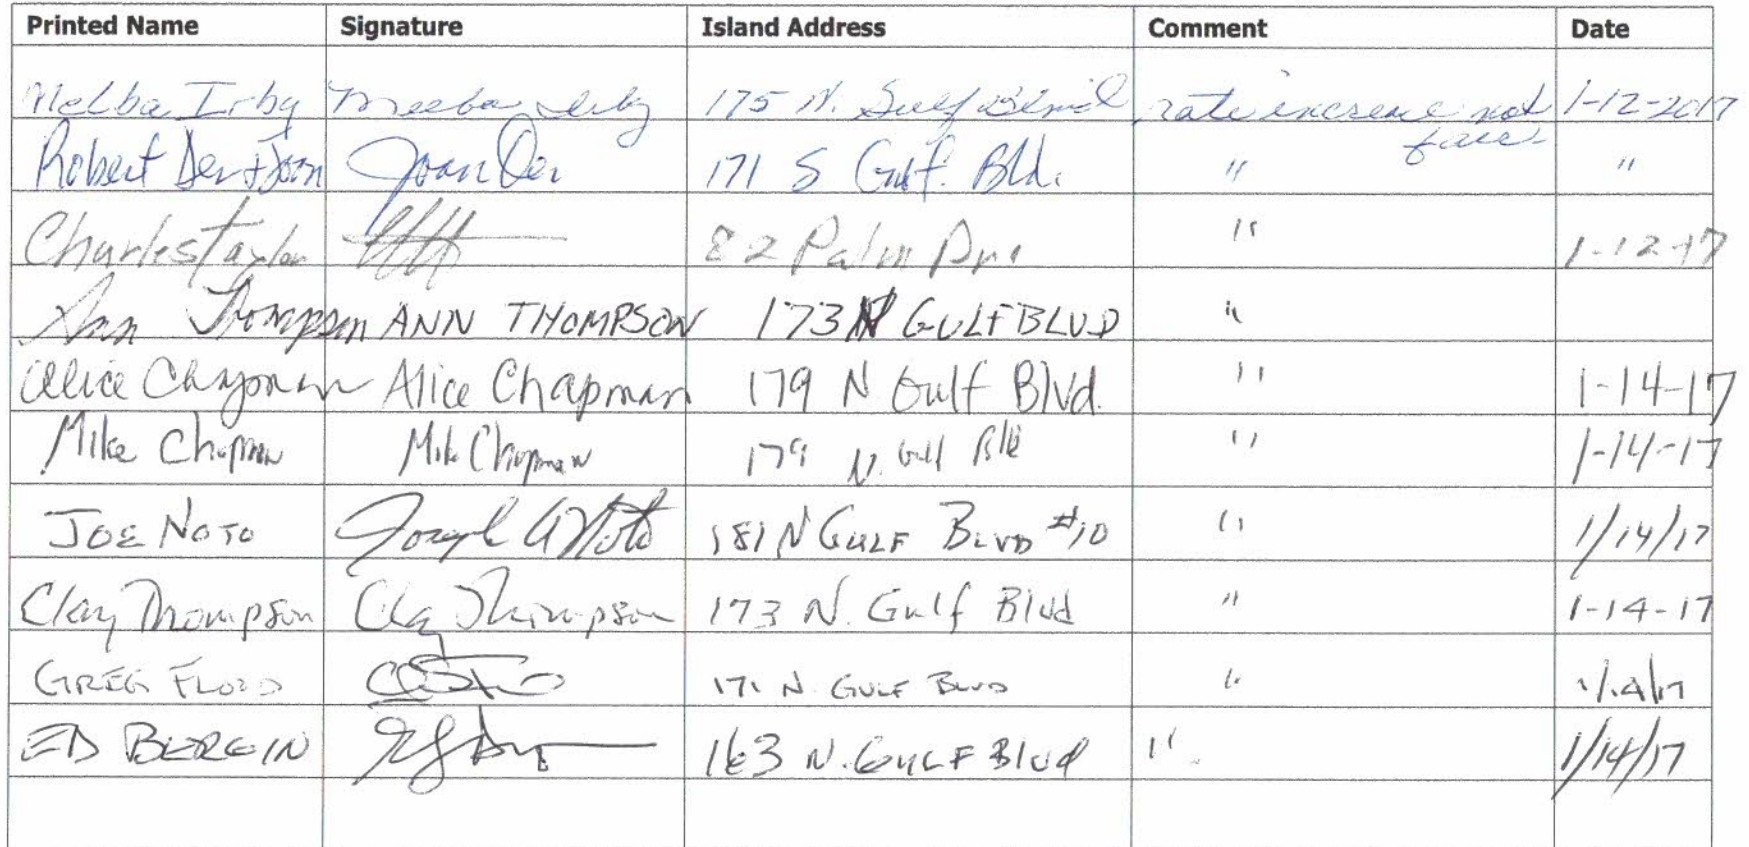 Printed Name Signature Island Address Comment Date
Melba Irby Melba Irby 175 N. Gulf Blvd rate increase not 1-12-2017
fair.
Robert Der + Joan Joan Der 171 S Gulf. Bld. " "
Charles Taylor 82 Palm Dri " 1-12-17
Ann Thompson ANN THOMPSON 173 N GULF BLVD "
Alice Chapman Alice Chapman 179 N Gulf Blvd. " 1-14-17
Mike Chapman Mike Chapman 179 N. Gulf " 1-14-17
JOE NOTO Joseph A Noto 181 N GULF BLVD #10 " 1/14/17
Clay Thompson Clay Thompson 173 N. Gulf Blvd " 1-14-17
GREG FLOYD 171 N. GULF BLVD " 1/14/17
ED BERGIN 163 N. GULF Blvd " 1/14/17